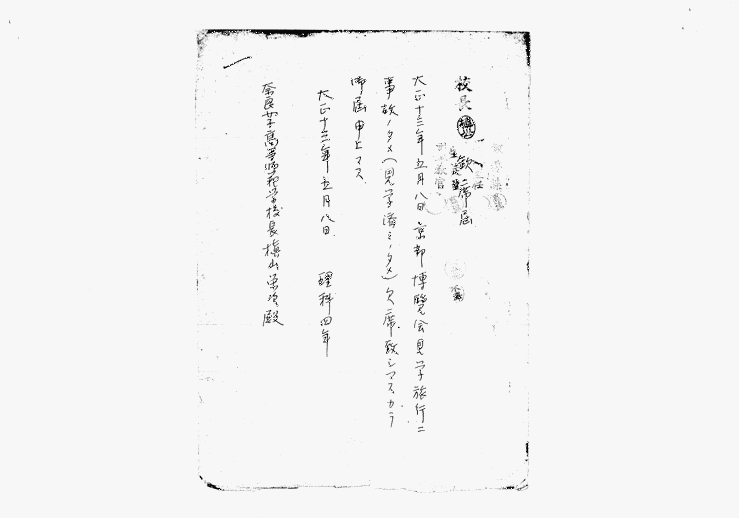 校長
欽席届
大正十三年五月八日京都博覧会見学旅行ニ
事故ノタメ(見学済ミノタメ)欠席致シマスカラ
御届申上マス
大正十三年五月八日
理科四年
奈良女子高等師範学校長槇山栄次殿